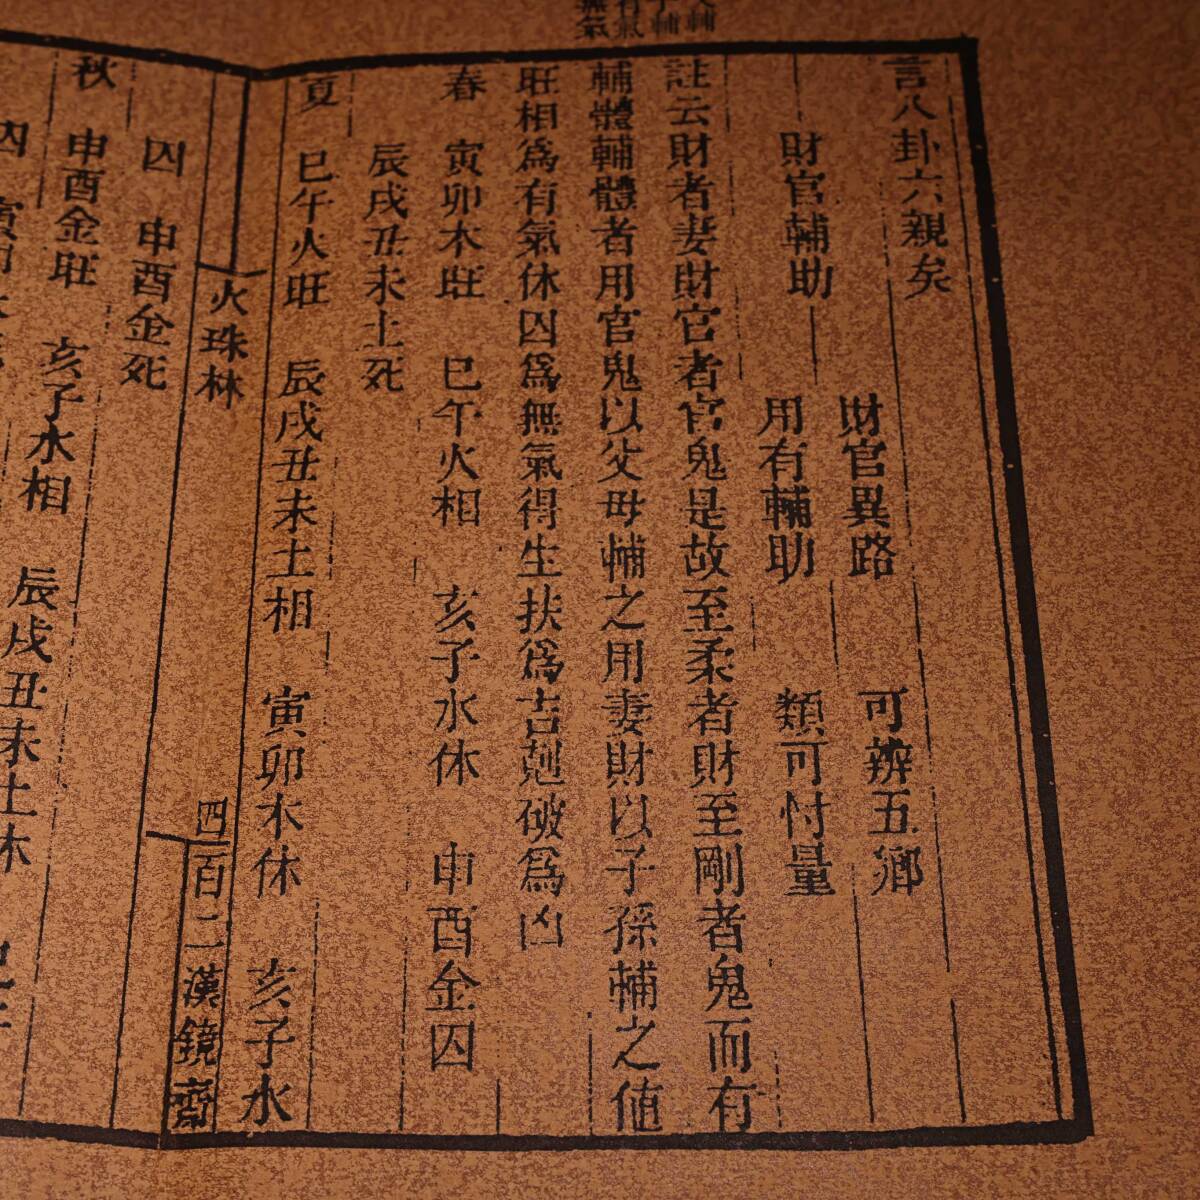 言八卦六親矣
財官異路 可辨五鄉
財官輔助 用有輔助 類可忖量
註云財者妻財官者官鬼是故至柔者財至剛者鬼而有
輔體輔體者用官鬼以父母輔之用妻財以子孫輔之值
旺相為有氣休囚為無氣得生扶為吉剋破為凶
春 寅卯木旺 巳午火相 亥子水休 申酉金囚
辰戌丑未土死
夏 巳午火旺 辰戌丑未土相 寅卯木休 亥子水
火珠林 四百二 漢鏡齋
囚 申酉金死
秋 申酉金旺 亥子水相 辰戌丑未土休